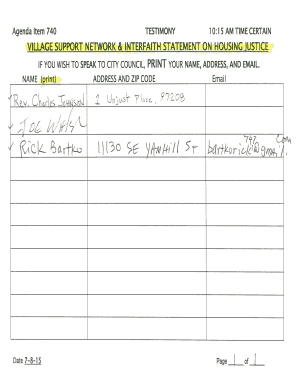 Agenda Item 740 TESTIMONY 10:15 AM TIME CERTAIN
VILLAGE SUPPORT NETWORK & INTERFAITH STATEMENT ON HOUSING JUSTICE
IF YOU WISH TO SPEAK TO CITY COUNCIL, PRINT YOUR NAME, ADDRESS, AND EMAIL.
NAME (print) ADDRESS AND ZIP CODE Email
✓ Rev. Charles Johnson 1 Unjust Place, 97208
✓ JOE WALSH
✓ Rick Bartko 11130 SE YAMHILL ST bartkorick747@gmail.com
Date 7-8-15 Page 1 of 1